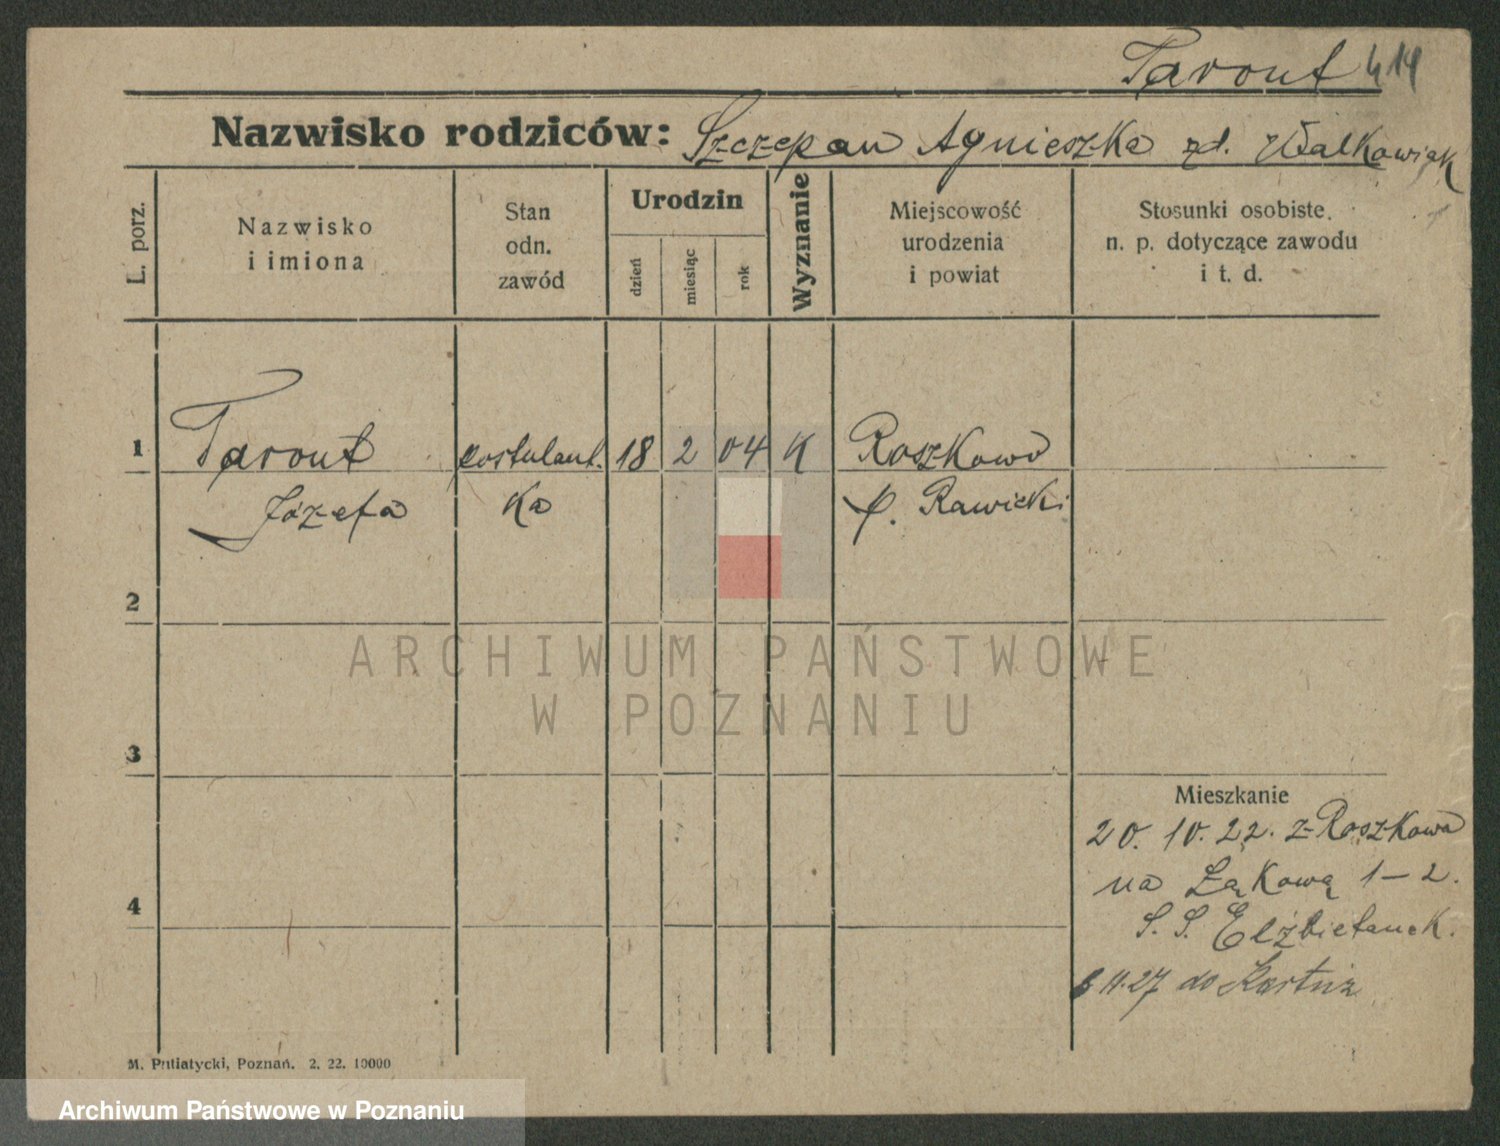 Taront 414
Nazwisko rodziców: Szczepan Agnieszka zd. Walkowiak
L. porz.
Nazwisko
i imiona
Stan
odn.
zawód
Urodzin
dzień
miesiąc
rok
Wyznanie
Miejscowość
urodzenia
i powiat
Stosunki osobiste,
n. p. dotyczące zawodu
i t. d.
1 Taront postulant. 18 2 04 K Roszkowo
Józefa ka p. Rawicki
2
ARCHIWUM PAŃSTWOWE
W POZNANIU
3
Mieszkanie
20. 10. 22. z Roszkowa
na Łąkową 1-2.
4
S. S. Elżbietanek.
11.27 do Kartuz
M. Putiatycki, Poznań. 2. 22. 10000
Archiwum Państwowe w Poznaniu